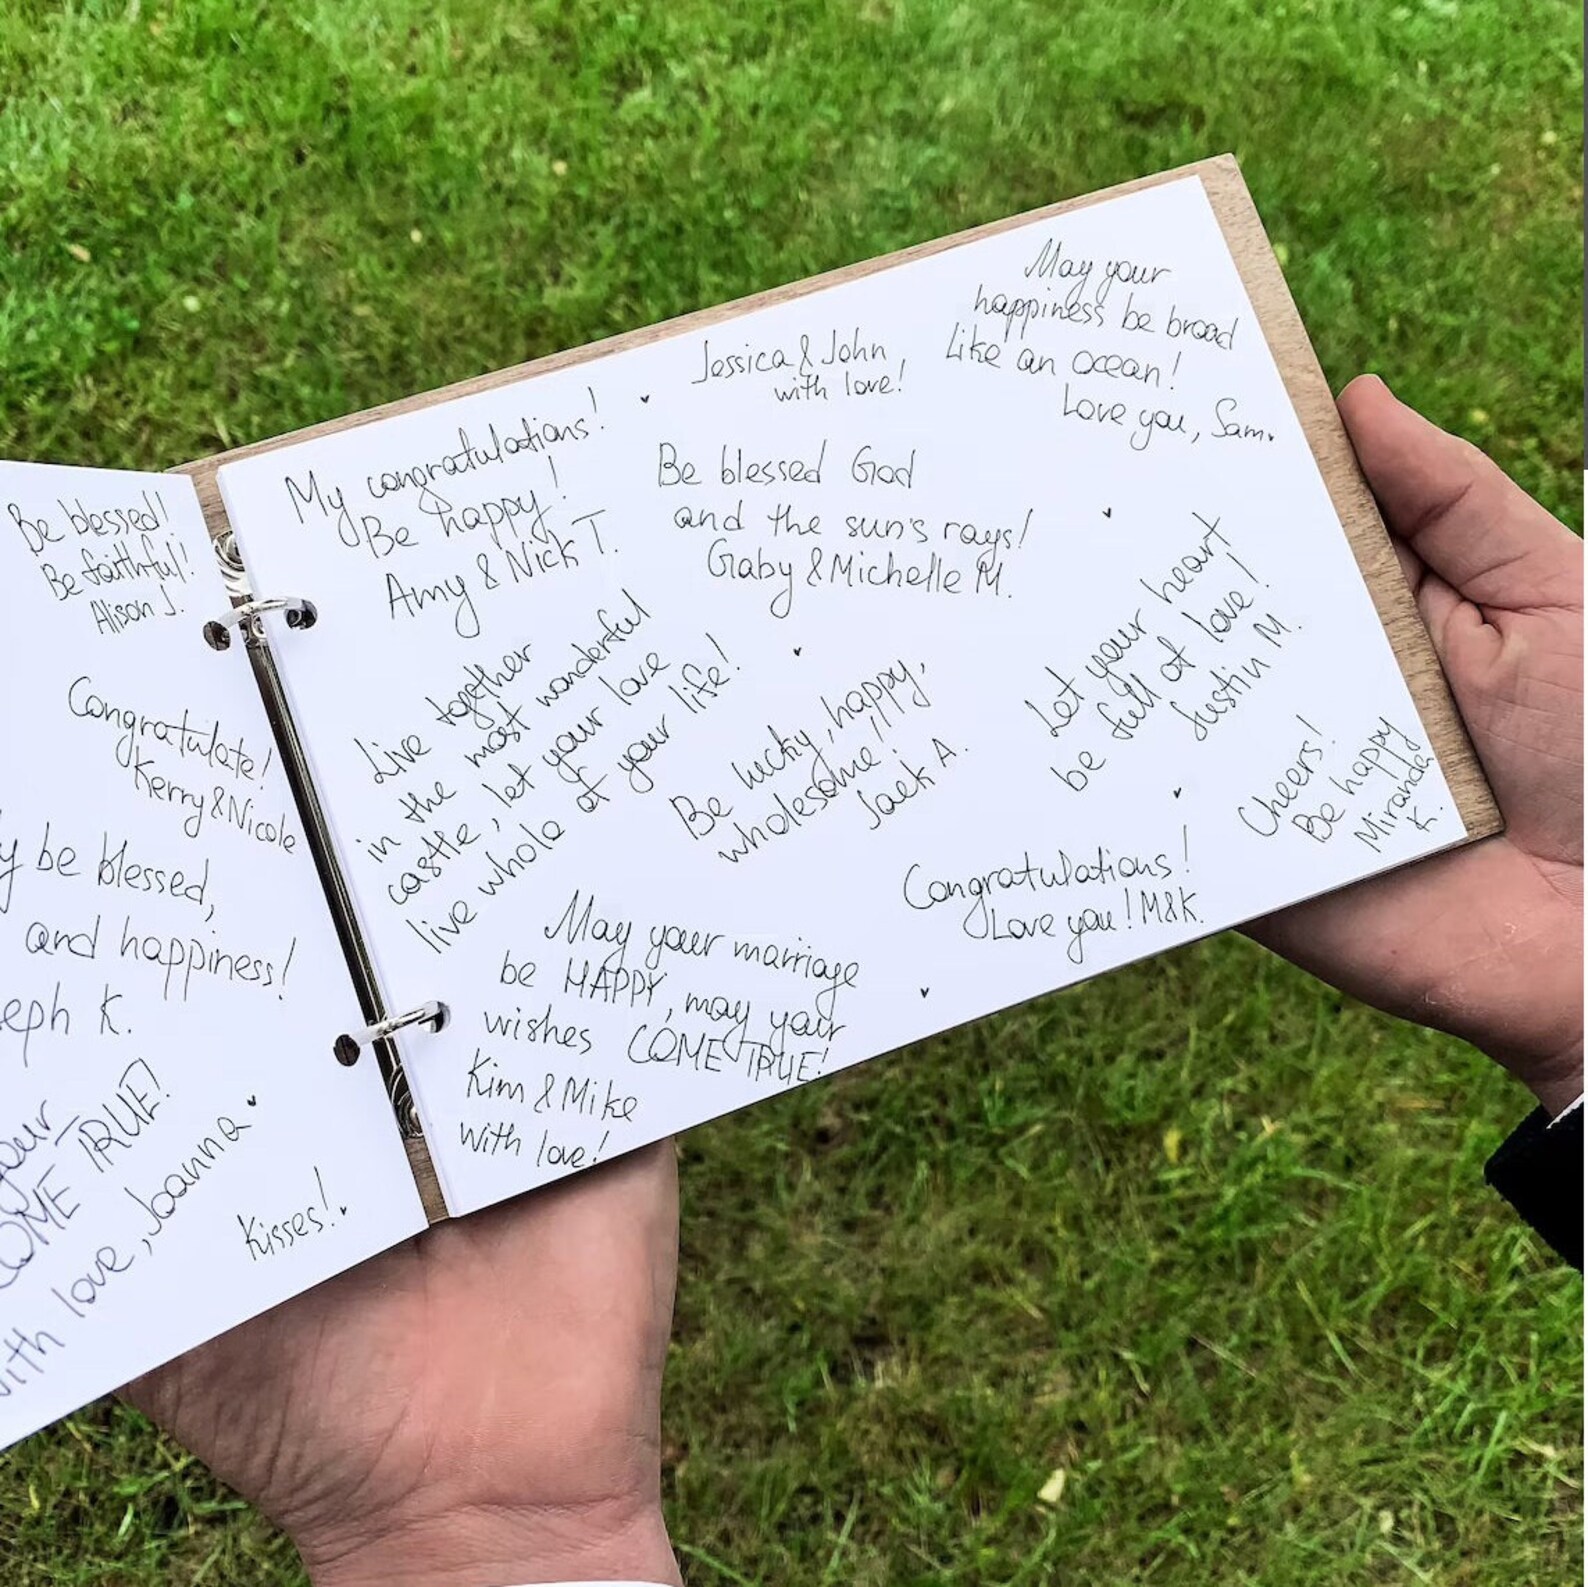 Be blessed!
Be faithful!
Alison J.
Congratulate!
Kerry & Nicole
be blessed,
and happiness!
eph K.
your
COME TRUE!
with love, Joanna
Kisses!
My congratulations!
Be happy!
Amy & Nick T.
Jessica & John,
with love!
May your
happiness be broad
Like an ocean!
Love you, Sam.
Be blessed God
and the sun's rays!
Gaby & Michelle M.
Live together
in the most wonderful
castle, let your love
live whole of your life!
Be lucky, happy,
wholesome!
Jack A.
Let your heart
be full of love!
Justin M.
Cheers!
Be happy
Miranda
K.
Congratulations!
Love you! M&K.
May your marriage
be HAPPY, may your
wishes COME TRUE!
Kim & Mike
with love!